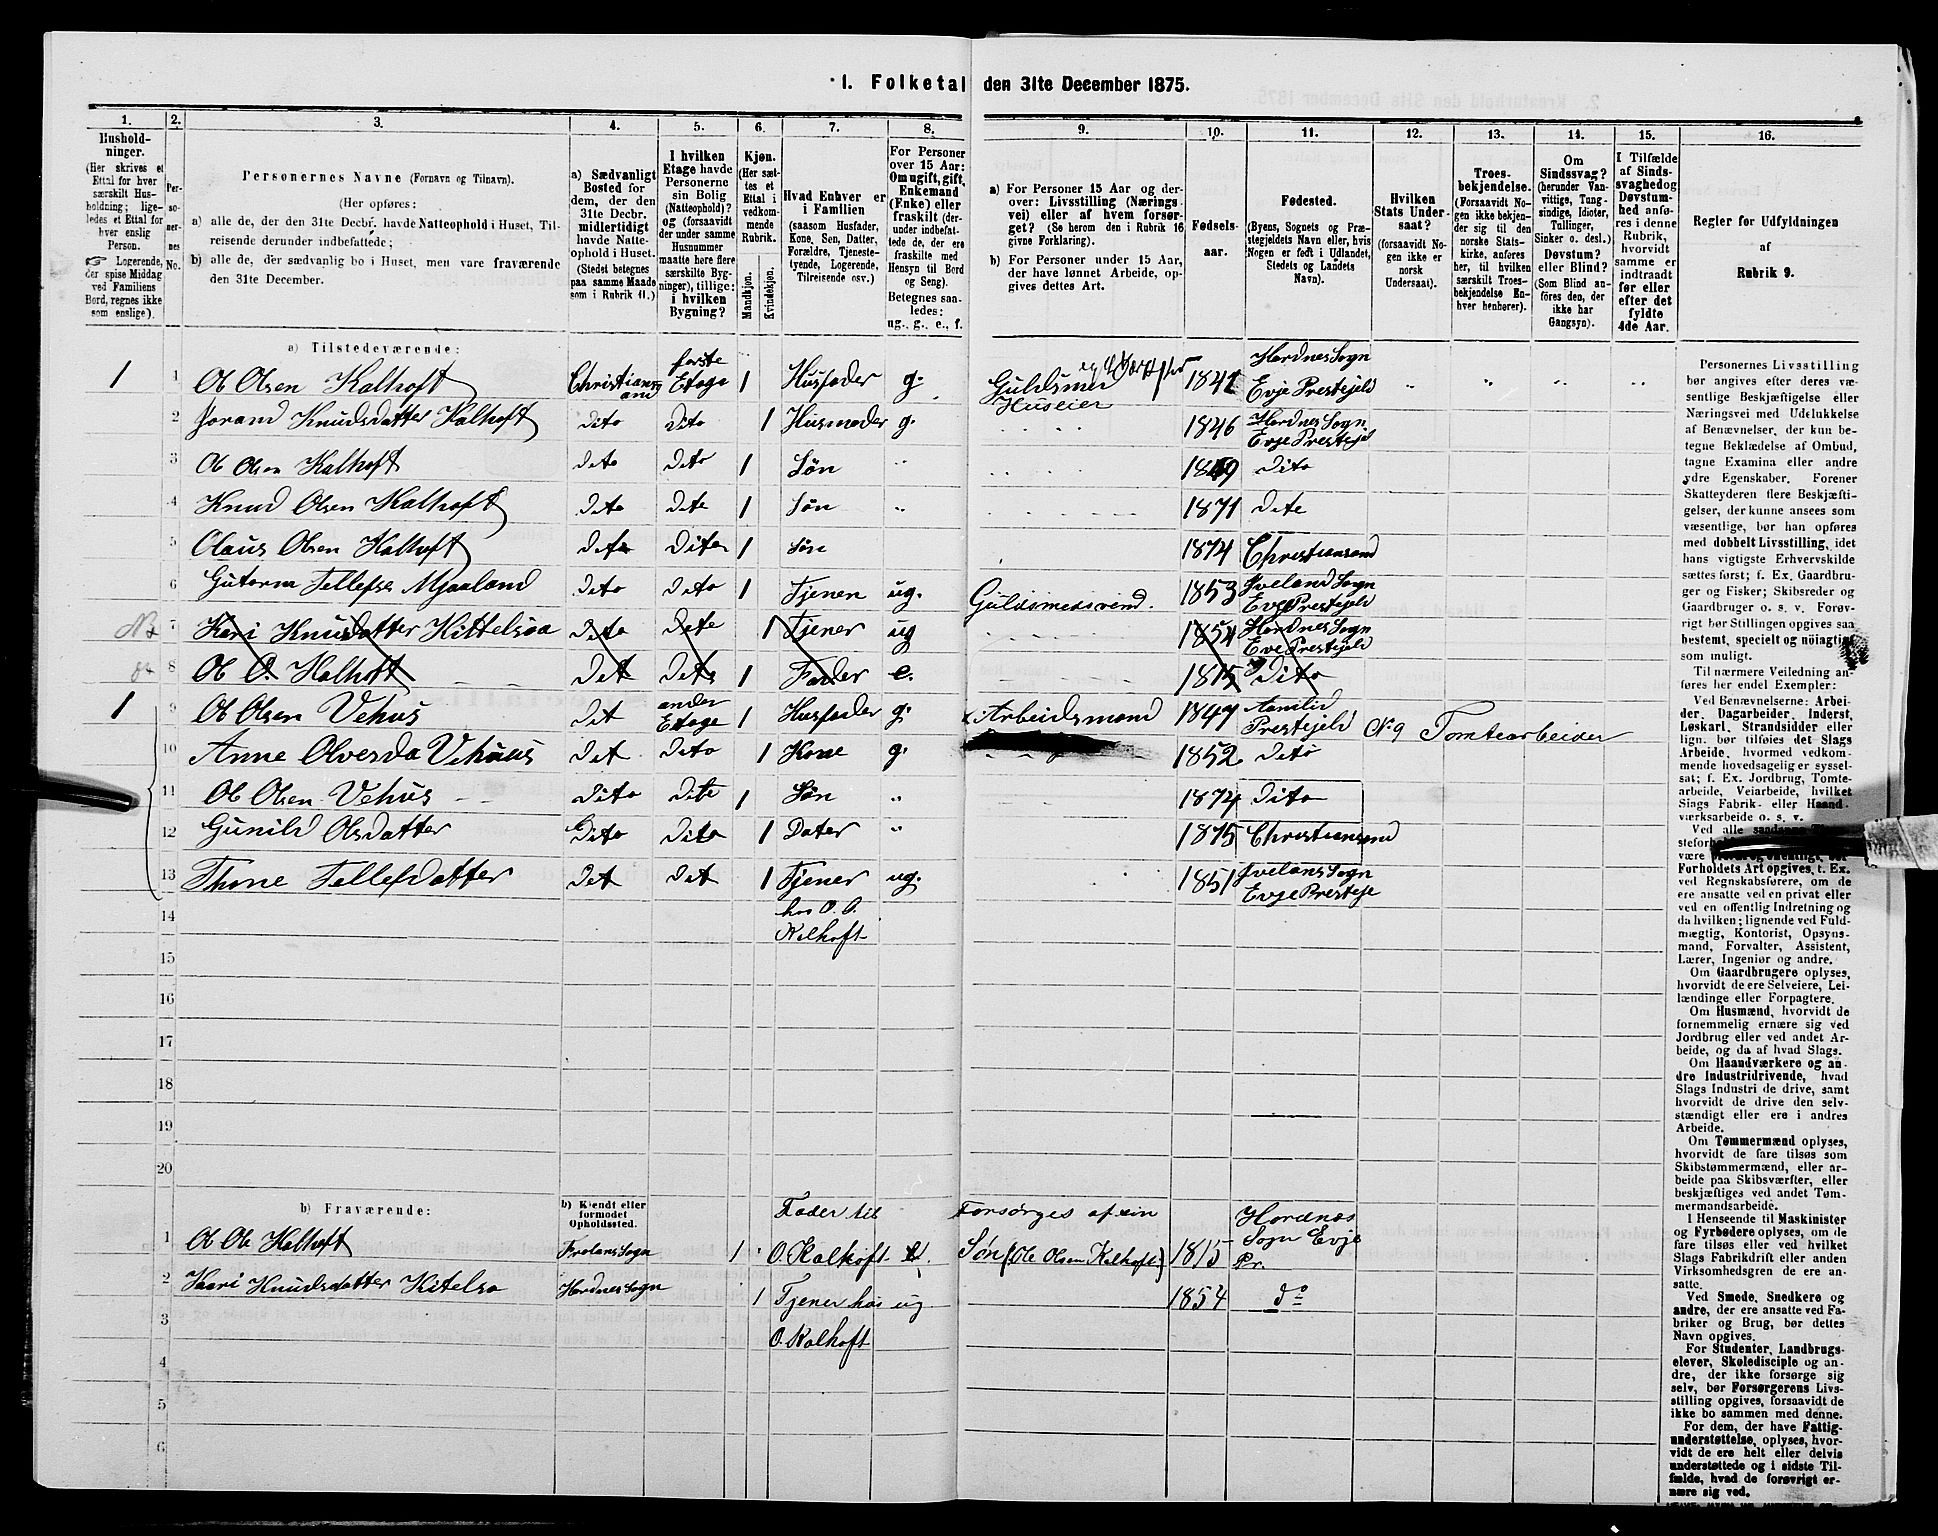 1. Folketal den 31te December 1875.
1. 2. 3. 4. 5. 6. 7. 8. 9. 10. 11. 12. 13. 14. 15. 16.
Hushold-
ninger.
(Her skrives et
Ettal for hver
særskilt Hus-
holdning; lige-
ledes et Ettal for
hver enslig
Person.
☞ Logerende,
der spise Middag
ved Familiens
Bord, regnes ikke
som enslige).
Per-
so-
ner-
nes
No.
Personernes Navne (Fornavn og Tilnavn).
(Her opføres:
a) alle de, der den 31te Decbr. havde Natteophold i Huset, Til-
reisende derunder indbefattede;
b) alle de, der sædvanlig bo i Huset, men vare fraværende
den 31te December.
a) Sædvanligt
Bosted for
dem, der den
31te Decbr.
midlertidigt
havde Natte-
ophold i Huset.
(Stedet betegnes
paa samme Maade
som i Rubrik 11.)
I hvilken
Etage havde
Personerne
sin Bolig
(Natteophold)?
og (forsaavidt
der under samme
Husnummer
maatte høre flere
særskilte Byg-
ninger), tillige:
i hvilken
Bygning?
Kjøn.
(Her sæt-
tes et
Ettal i
vedkom-
mende
Rubrik.
Mandkjøn.
Kvindekjøn.
Hvad Enhver er
i Familien
(saasom Husfader,
Kone, Søn, Datter,
Forældre, Tjeneste-
tyende, Logerende,
Tilreisende osv.)
For Personer
over 15 Aar:
Om ugift, gift,
Enkemand
(Enke) eller
fraskilt (der-
under indbefat-
tede de, der ere
fraskilte med
Hensyn til Bord
og Seng).
Betegnes saa-
ledes:
ug., g., e., f.
a) For Personer 15 Aar og der-
over: Livsstilling (Nærings-
vei) eller af hvem forsør-
get? (Se herom den i Rubrik 16
givne Forklaring).
b) For Personer under 15 Aar,
der have lønnet Arbeide, op-
gives dettes Art.
Fødsels-
aar.
Fødested.
(Byens, Sognets og Præ-
stegjeldets Navn eller, hvis
Nogen er født i Udlandet,
Stedets og Landets
Navn).
Hvilken
Stats Under-
saat?
(forsaavidt No-
gen ikke er
norsk
Undersaat).
Troes-
bekjendelse.
(Forsaavidt No-
gen ikke bekjen-
der sig til den
norske Stats-
kirke, anføres
her, til hvilken
særskilt Troes-
bekjendelse En-
hver henhører).
Om
Sindssvag?
(herunder Van-
vittige, Tung-
sindige, Idioter,
Tullinger,
Sinker o. desl.)
Døvstum?
eller Blind?
(Som Blind an-
føres den, der
ikke har
Gangsyn).
I Tilfælde
af Sinds-
svaghed og
Døvstum-
hed anfø-
res i denne
Rubrik,
hvorvidt
samme er
indtraadt
før eller
efter det
fyldte
4de Aar.
Regler for Udfyldningen
af
Rubrik 9.
a) Tilstedeværende:
1 1 Ole Olsen Kalhoft Christiansand første Etage 1 Husfader g. Guldsmed Huseier 1841 Hordnes Sogn Evje Prestejeld
2 Jorand Knudsdatter Kalhoft Dito Dito 1 Husmoder g. 1846 Hordnes Sogn Evje Prestejel
3 Ole Olsen Kalhoft Dito Dito 1 Søn 1869 Dito
4 Knud Olsen Kalhoft Dito Dito 1 Søn 1871 Dito
5 Olaus Olsen Kalhoft Dito Dito 1 Søn 1874 Christiansand
6 Gutorm Tellefse Mjaaland Dito Dito 1 Tjener ug. Guldsmedsvend. 1853 Iveland Sogn Evje Prestejeld
7 Kari Knudsdatter Kittelsaa Dito Dito 1 Tjener ug 1854 Hordnes Sogn Evje Prestejeld
8 Ole O. Kalhoft Dit Dito 1 Fader e. 1815 Dito
1 9 Ole Olsen Vehus Dit ander Etage 1 Husfader g. Arbeidsmand 1847 Aamlid Prestejeld No 9 Tomtearbeider
10 Anne Olversda Vehuus Dit Dito 1 Kone g. 1852 Dito
11 Ole Olsen Vehus Dito Dito 1 Søn 1874 Dito
12 Gunild Olsdatter Dito Dito 1 Dater 1875 Christiansand
13 Thone Tellefsdatter Dit Dit 1 Tjener ug. 1851 Ivelans Sogn Evje Presteje
14 hos O. O.
Kalhoft
15
16
17
18
19
20
b) Fraværende:
b) Kjendt eller
formodet
Opholdssted.
1 Ole Ols Kalhoft Frolans Sogn 1 Fader til O. Kalhoft e. Forsørges af sin Søn (Ole Olsen Kalhoft) 1815 Hordnæs Sogn Evje Pr.
2 Kari Knudsdatter Kitelsa Hordnes Sogn 1 Tjener hos ug 1854 do
3 O. Kalhoft
4
5
6
Personernes Livsstilling
bør angives efter deres væ-
sentlige Beskjæftigelse eller
Næringsvei med Udelukkelse
af Benævnelser, der kun be-
tegne Beklædelse af Ombud,
tagne Examina eller andre
ydre Egenskaber. Forener
Skatteyderen flere Beskjæfti-
gelser, der kunne ansees som
væsentlige, bør han opføres
med dobbelt Livsstilling, idet
hans vigtigste Erhvervskilde
sættes først; f. Ex. Gaardbru-
ger og Fisker; Skibsreder og
Gaardbruger o. s. v. Forøv-
rigt bør Stillingen opgives saa
bestemt, specielt og nøiagtig
som muligt.
Til nærmere Veiledning an-
føres her endel Exempler:
Ved Benævnelserne: Arbei-
der, Dagarbeider, Inderst,
Løskarl, Strandsidder eller
lign. bør tilføies det Slags
Arbeide, hvormed vedkom-
mende hovedsagelig er syssel-
sat; f. Ex. Jordbrug, Tomte-
arbeide, Veiarbeide, hvilket
Slags Fabrik- eller Haand-
værksarbeide o. s. v.
Ved alle
Forholdets Art opgives, f. Ex.
ved Regnskabsførere, om de
ere ansatte ved en privat eller
ved en offentlig Indretning og
da hvilken; lignende ved Fuld-
mægtig, Kontorist, Opsyns-
mand, Forvalter, Assistent,
Lærer, Ingeniør og andre.
Om Gaardbrugere oplyses,
hvorvidt de ere Selveiere, Lei-
lændinge eller Forpagtere.
Om Husmænd, hvorvidt de
fornemmelig ernære sig ved
Jordbrug eller ved andet Ar-
beide, og da af hvad Slags.
Om Haandværkere og an-
dre Industridrivende, hvad
Slags Industri de drive, samt
hvorvidt de drive den selv-
stændigt eller ere i andres
Arbeide.
Om Tømmermænd oplyses,
hvorvidt de fare tilsøs som
Skibstømmermænd, eller ar-
beide paa Skibsværfter, eller
beskjæftiges ved andet Tøm-
mermandsarbeide.
I Henseende til Maskinister
og Fyrbødere oplyses, om de
fare tilsøs eller ved hvilket
Slags Fabrikdrift eller anden
Virksomhedsgren de ere an-
satte.
Ved Smede, Snedkere og
andre, der ere ansatte ved Fa-
briker og Brug, bør dettes
Navn opgives.
For Studenter, Landbrugs-
elever, Skoledisciple og an-
dre, der ikke forsørge sig
selv, bør Forsørgerens Livs-
stilling opgives, forsaavidt de
ikke bo sammen med denne.
For dem, der have Fattig-
understøttelse, oplyses, hvor-
vidt de ere helt eller delvis
understøttede og i sidste Til-
fælde, hvad de forøvrigt er-
nære sig ved.